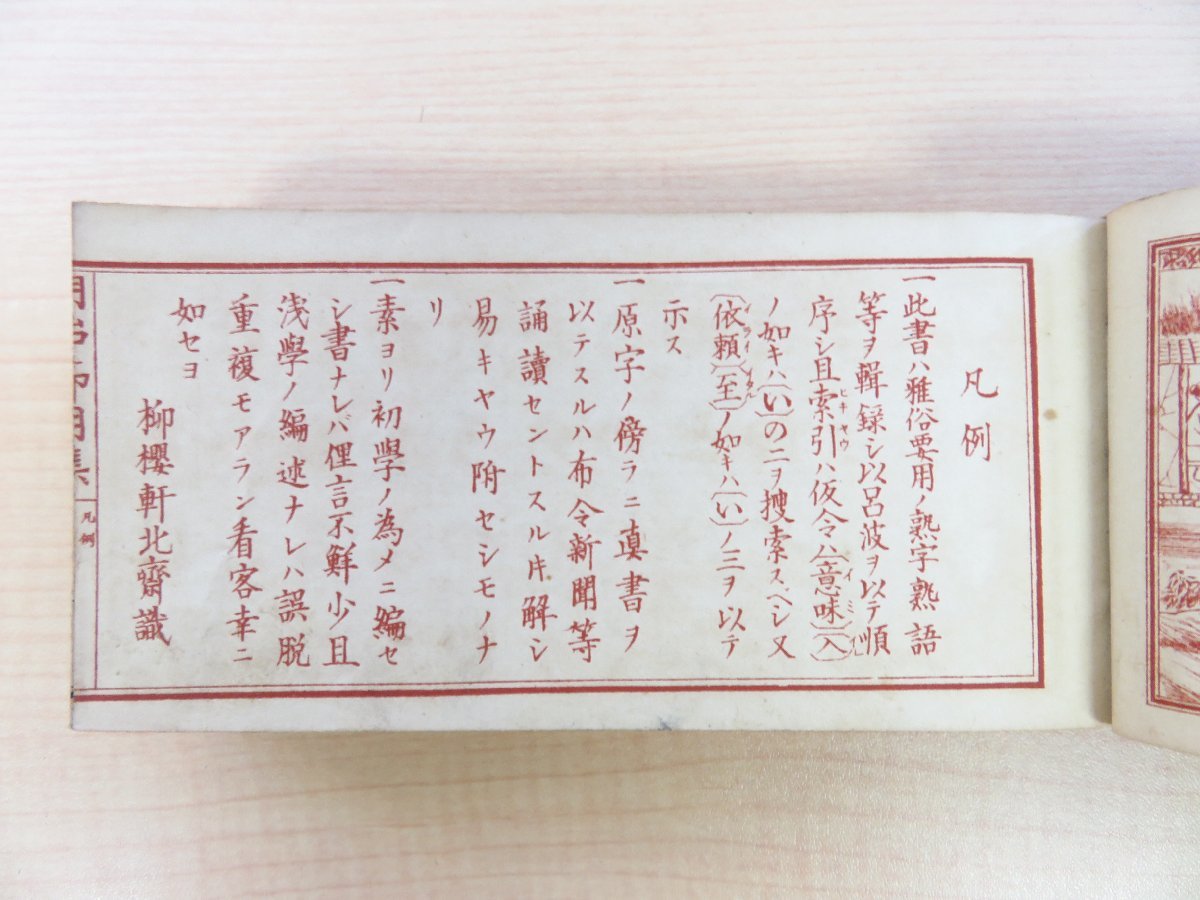 凡例
一此書ハ雅俗要用ノ熟字熟語
等ヲ輯録シ以呂波ヲ以テ順
序シ且索引ハ仮令ハ(意味)(入)
ヒキヤウ
イミ
イル
ノ如キハ(い)の二ヲ捜索スベシ又
(依頼)(至)ノ如キハ(い)ノ三ヲ以テ
イライ
イタル
示ス
一原字ノ傍ラニ真書ヲ
以テスルハ布令新聞等
誦讀セントスル片解シ
易キヤウ附セシモノナ
リ
一素ヨリ初學ノ為メニ編セ
シ書ナレバ俚言不鮮少且
浅學ノ編述ナレハ誤脱
重複モアラン看客幸ニ
如セヨ
柳櫻軒北齋識
用集
凡例